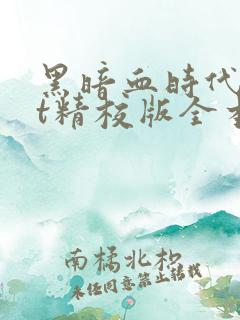 黑暗血時代
t精校版全
南橘北枳
未经同意禁止转载